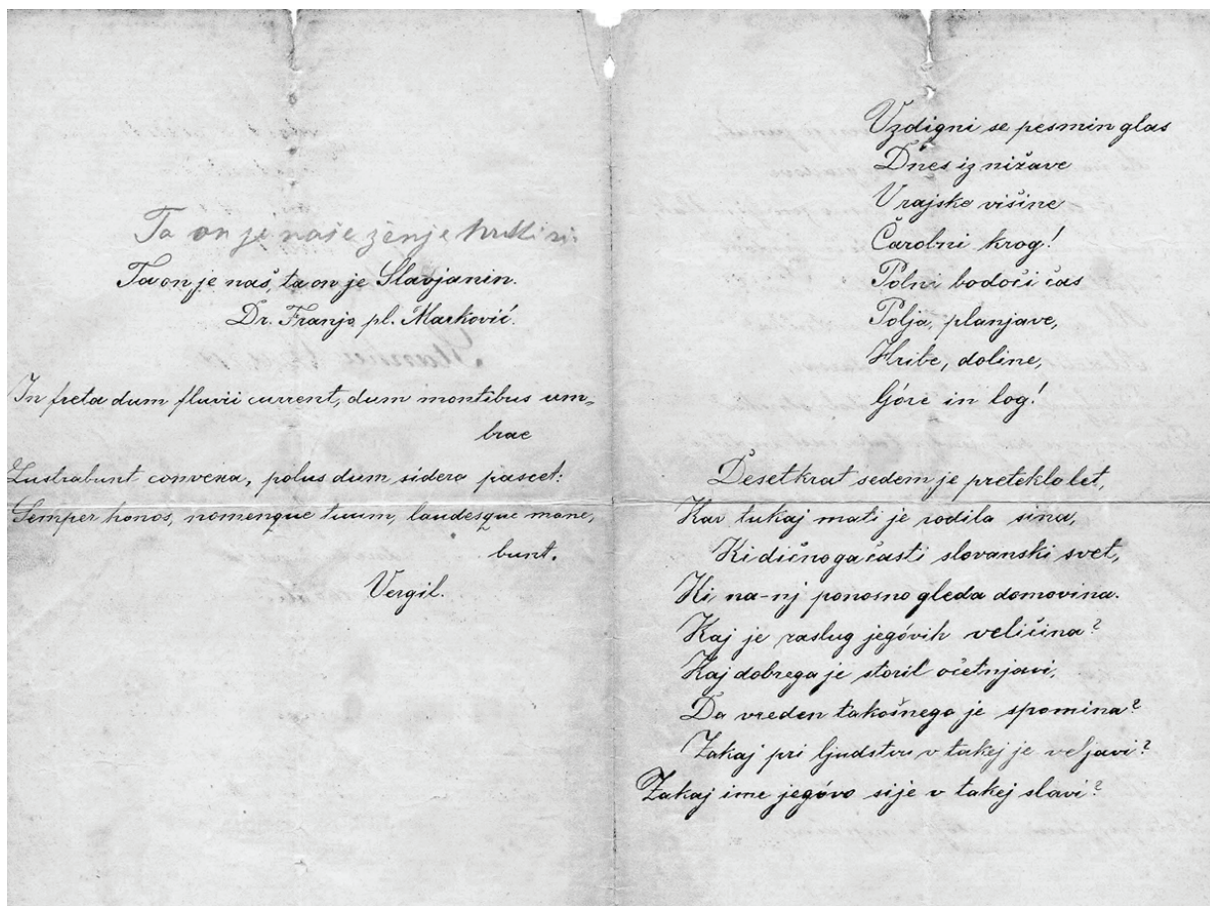 Ta on je naše
Ta on je naš, ta on je Slavjanin.
Dr. Franjo pl. Marković.
In freta dum fluvii current, dum montibus um-
brae
Lustrabunt convexa, polus dum sidera pascet:
Semper honos, nomenque tuum, laudesque mane,
bunt.
Vergil.
Vzdigni se pesmin glas
Dnes iz nižave
V rajske višine
Čarobni krog!
Polni bodoči čas
Polja, planjave,
Hribe, doline,
Góre in log!
Desetkrat sedem je preteklo let,
Kar tukaj mati je rodila sina,
Ki dičnoga časti slovanski svet,
Ki na-nj ponosno gleda domovina.
Kaj je zaslug jegóvih veličina?
Kaj dobrega je storil očetnjavi,
Da vreden takošnega je spomina?
Zakaj pri ljudstvu v takej je veljavi?
Zakaj ime jegóvo sije v takej slavi?